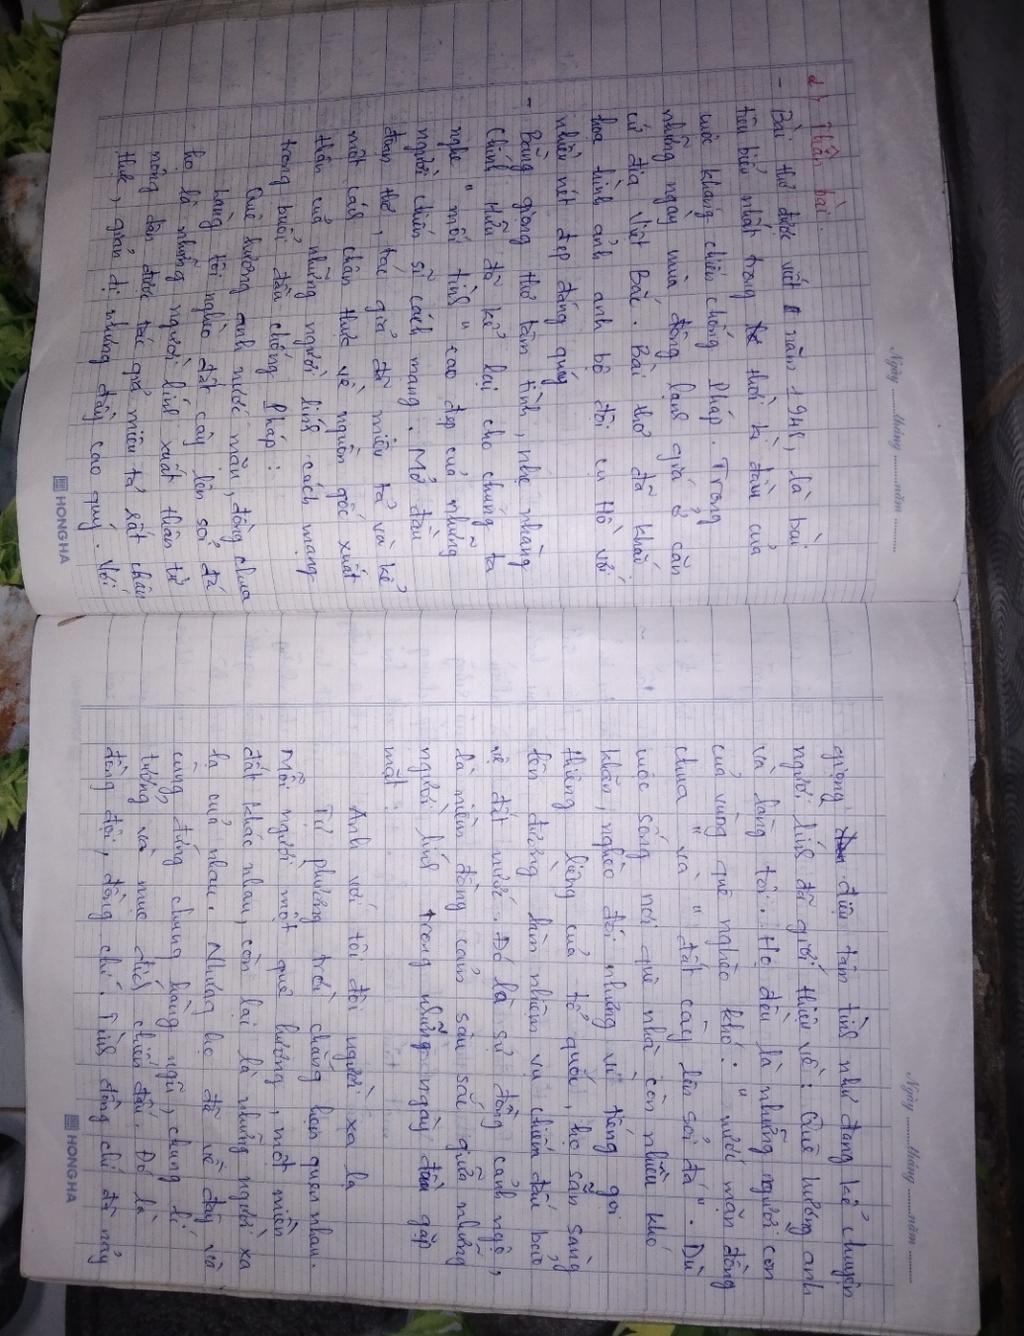 Ngày ......... tháng ......... năm .........
2) Thân bài:
- Bài thơ được viết năm 1948, là bài
tiêu biểu nhất trong thời kì đầu của
cuộc kháng chiến chống Pháp. Trong
những ngày mùa đông lạnh giá ở căn
cứ địa Việt Bắc. Bài thơ đã khắc
hoạ hình ảnh anh bộ đội cụ Hồ với
nhiều nét đẹp đáng quý
- Bằng giọng thơ tâm tình, nhẹ nhàng
Chính Hữu đã kể lại cho chúng ta
nghe "mối tình" cao đẹp của những
người chiến sĩ cách mạng. Mở đầu
đoạn thơ, tác giả đã miêu tả và kể
một cách chân thực về nguồn gốc xuất
thân của những người lính cách mạng
trong buổi đầu chống Pháp:
Quê hương anh nước mặn, đồng chua
Làng tôi nghèo đất cày lên sỏi đá
họ là những người lính xuất thân từ
nông dân được tác giả miêu tả rất chân
thực, giản dị nhưng đầy cao quý. Với
HONG HA
Ngày ......... tháng ......... năm .........
giọng điệu tâm tình như đang kể chuyện
người lính đã giới thiệu về: Quê hương anh
và làng tôi. Họ đều là những người con
của vùng quê nghèo khó. "nước mặn đồng
chua" và "đất cày lên sỏi đá". Dù
cuộc sống nơi quê nhà còn nhiều khó
khăn, nghèo đói nhưng vì tiếng gọi
thiêng liêng của tổ quốc, họ sẵn sàng
lên đường làm nhiệm vụ chiến đấu bảo
vệ đất nước. Đó là sự đồng cảnh ngộ,
là niềm đồng cảm sâu sắc giữa những
người lính trong những ngày đầu gặp
mặt.
Anh với tôi đôi người xa lạ
Tự phương trời chẳng hẹn quen nhau.
Mỗi người một quê hương, một miền
đất khác nhau, còn lại là những người xa
lạ của nhau. Nhưng họ đã về đây và
cùng đứng chung hàng ngũ, chung lí
tưởng và mục đích chiến đấu. Đó là
đồng đội, đồng chí. Tình đồng chí đã nảy
HONG HA